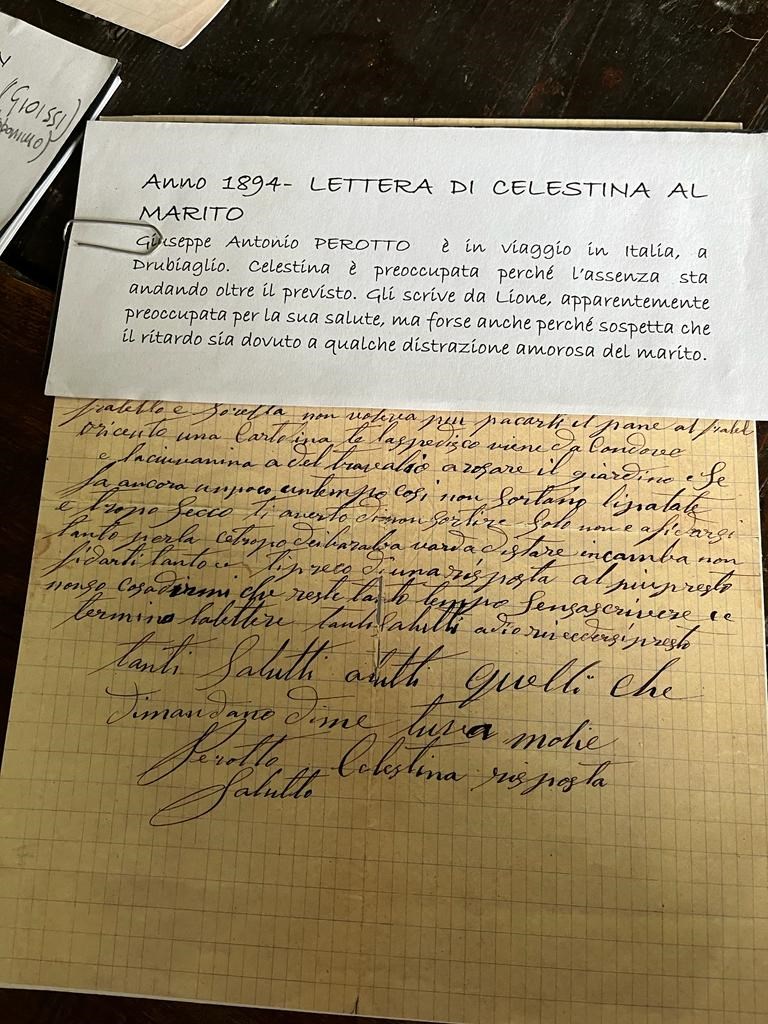 (GIOISSI)
Anno 1894- LETTERA DI CELESTINA AL
MARITO
Giuseppe Antonio PEROTTO è in viaggio in Italia, a
Drubiaglio. Celestina è preoccupata perché l'assenza sta
andando oltre il previsto. Gli scrive da Lione, apparentemente
preoccupata per la sua salute, ma forse anche perché sospetta che
il ritardo sia dovuto a qualche distrazione amorosa del marito.
fratello e Sorella non voleva piu pacarti il pane al fratel
una Cartolina te la spedisco viene da Condove
e a del travalio a rosare il giardino e Se
fa ancora unpoco untempo cosi non Sortano lipatate
e tropo Secco ti averto dinon Sortire Solo non e a fidarsi
tanto perla distare incamba non
fidarti tanto e tipreco di una risposta al piu presto
nonso cosadirmi che reste tanto tempo Sensascrivere e
termino labettere tanti Salutti adio rivedersi presto
tanti Salutti atutti quelli che
dimandano dime tuva molie
Perotto Celestina risposta
Salutto